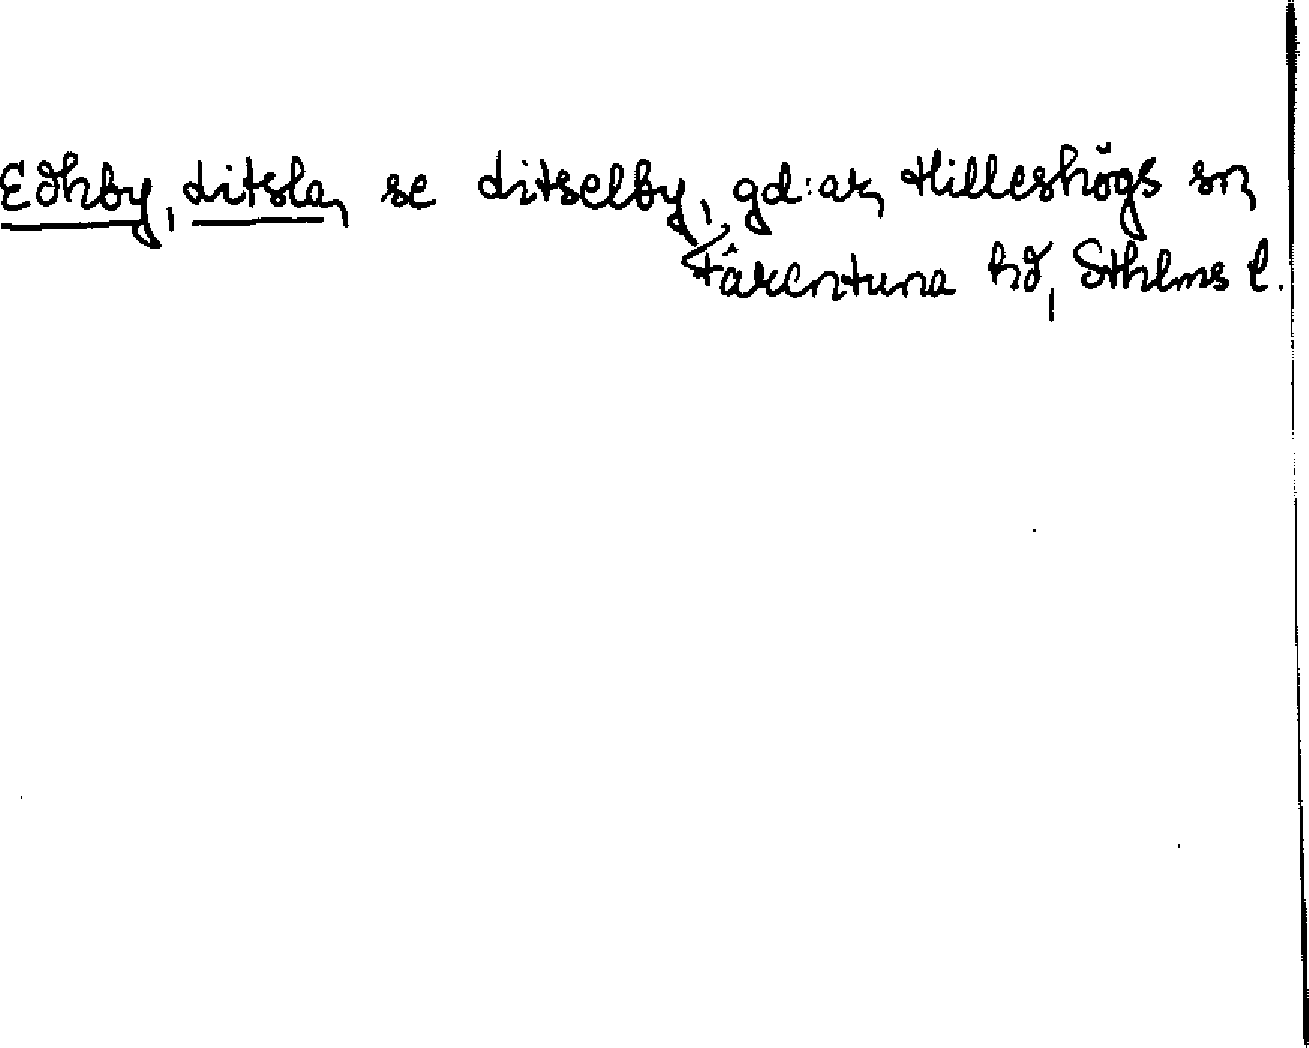 Edhby, Litsla, se Litselby, gd:ar, Hilleshögs sn,
Färentuna hd, Sthlms l.